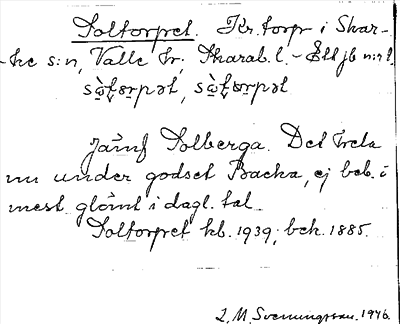 Soltorpet. Kr. torp i Skar-
-ke s:n, Valle hr, Skarab. l. - Ett jb n:r 1.
Jämf Solberga. Det hela
nu under godset Backa, ej beb. i
mest glömt i dagl. tal.
Soltorpet kb. 1939, bek. 1885.
L. M. Svenungsson. 1946.